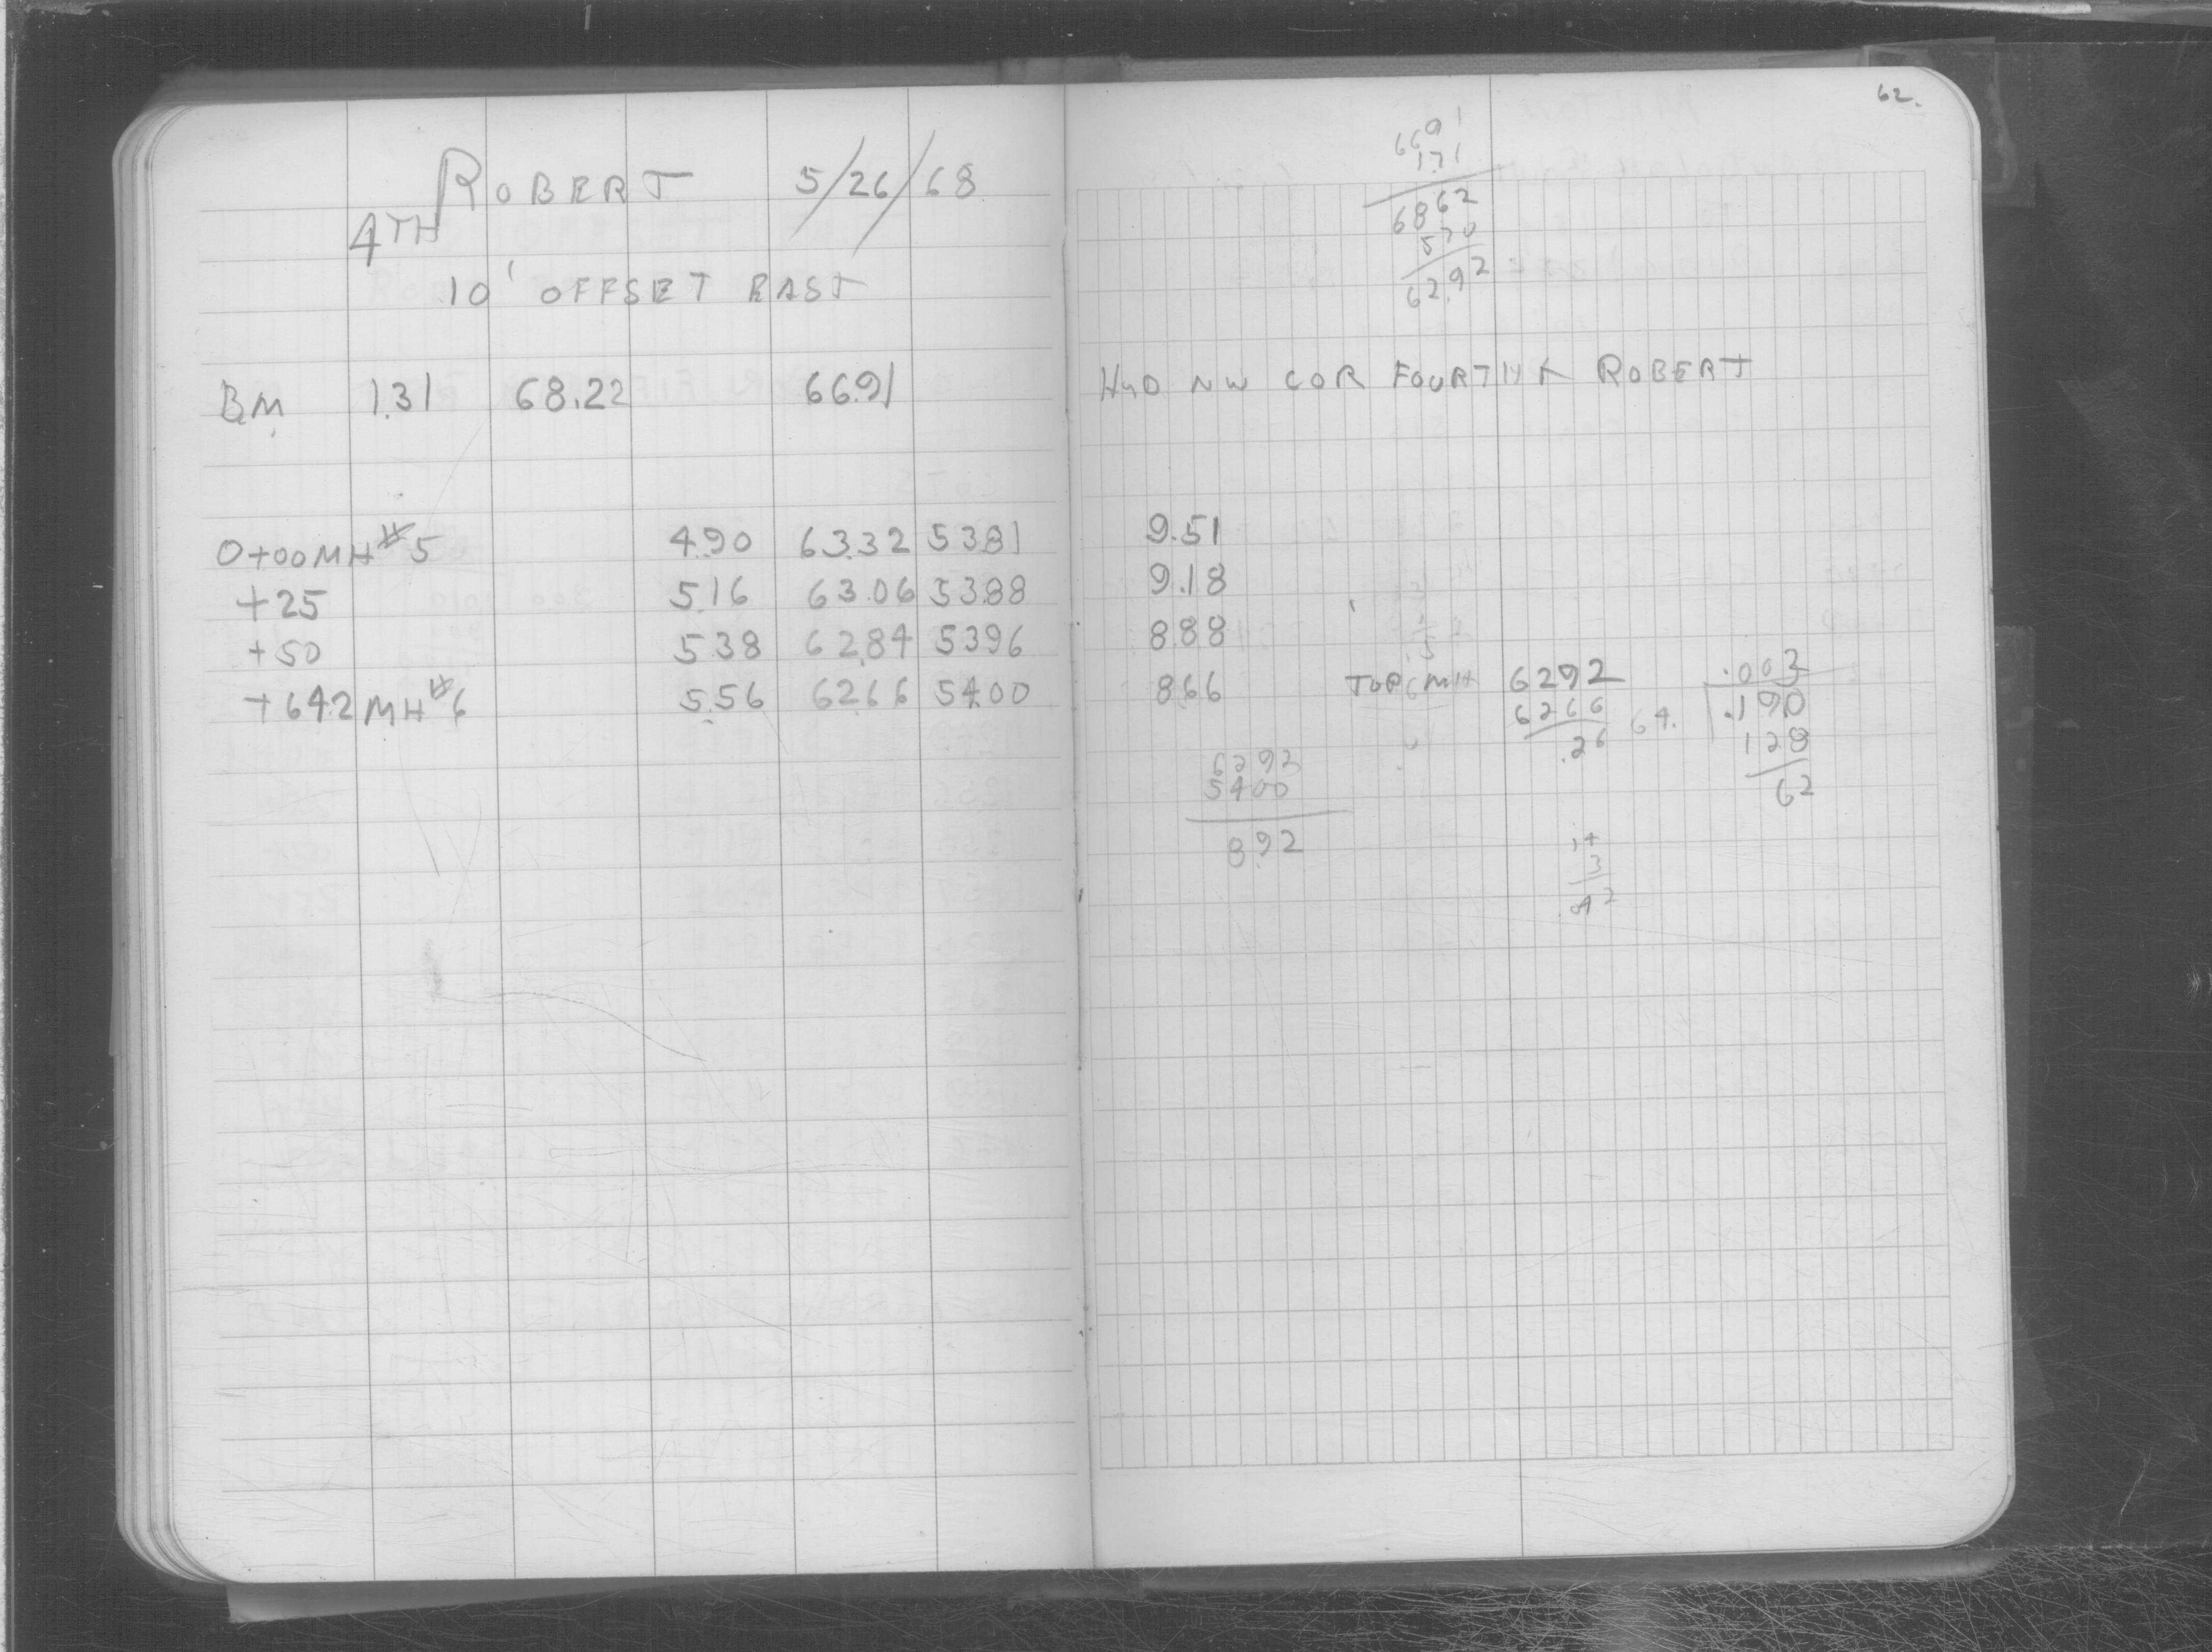 ROBERT 5/26/68
4TH
10' OFFSET EAST
BM 1.31 68.22 66.91
0+00 MH #5 4.90 63.32 53.81
+25 5.16 63.06 53.88
+50 5.38 62.84 53.96
+64.2 MH #6 5.56 62.66 54.00
62.
66.91
1.71
68.62
5.70
62.92
HYD NW COR FOURTH & ROBERT
9.51
9.18
8.88
8.66 TOP MH 62.92
62.66
.26
64. .190
.003
128
62
62.92
54.00
8.92
14
3
.42